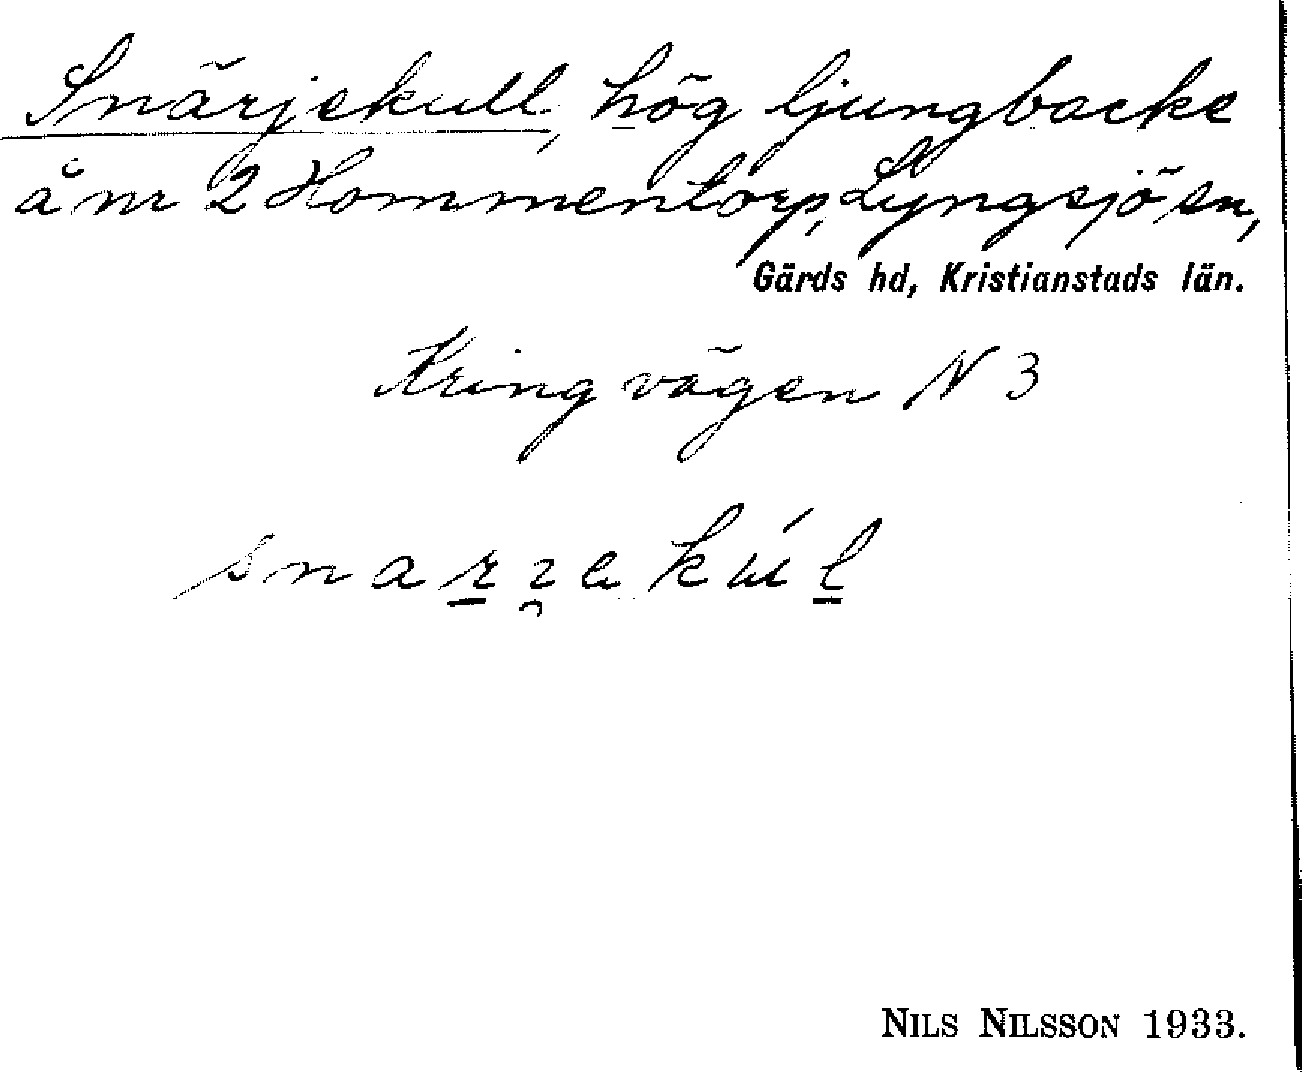 Snärjekull, hög ljungbacke
å nr 2 Hommentorp, Lyngsjö sn,
Gärds hd, Kristianstads län.
Kring vägen N 3
NILS NILSSON 1933.